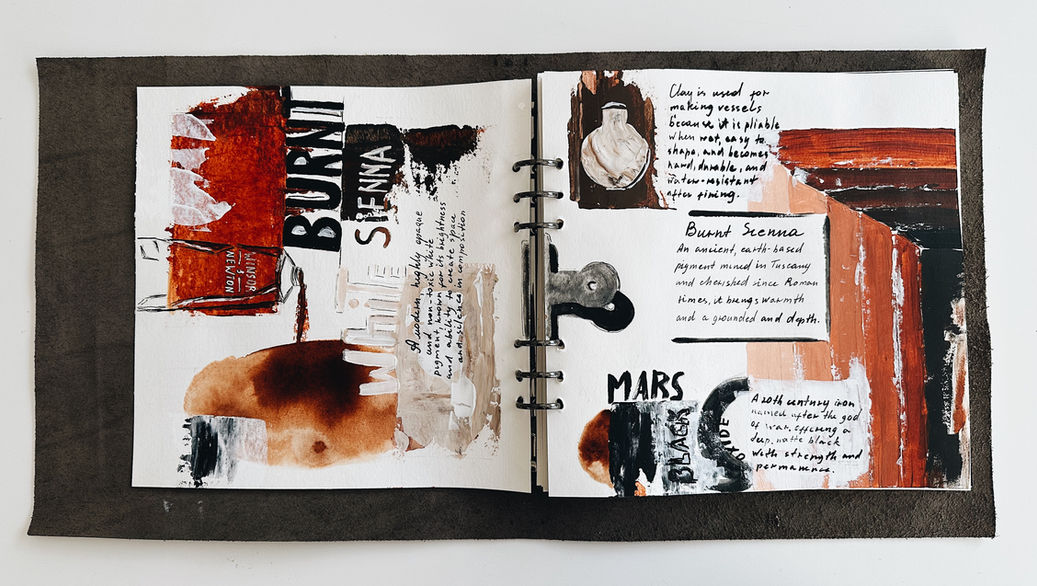 BURNT
SIENNA
WINSOR
&
NEWTON
WHITE
A modern, highly opaque
and non-toxic white
pigment, known for its brightness
and ability to create space
and silences in composition
Clay is used for
making vessels
because it is pliable
when wet, easy to
shape, and becomes
hard, durable, and
water-resistant
after firing.
Burnt Sienna
An ancient, earth-based
pigment mined in Tuscany
and cherished since Roman
times, it brings warmth
and a grounded and depth.
MARS
BLACK
A 20th century iron
named after the god
of war, offering a
deep, matte black
with strength and
permanence.